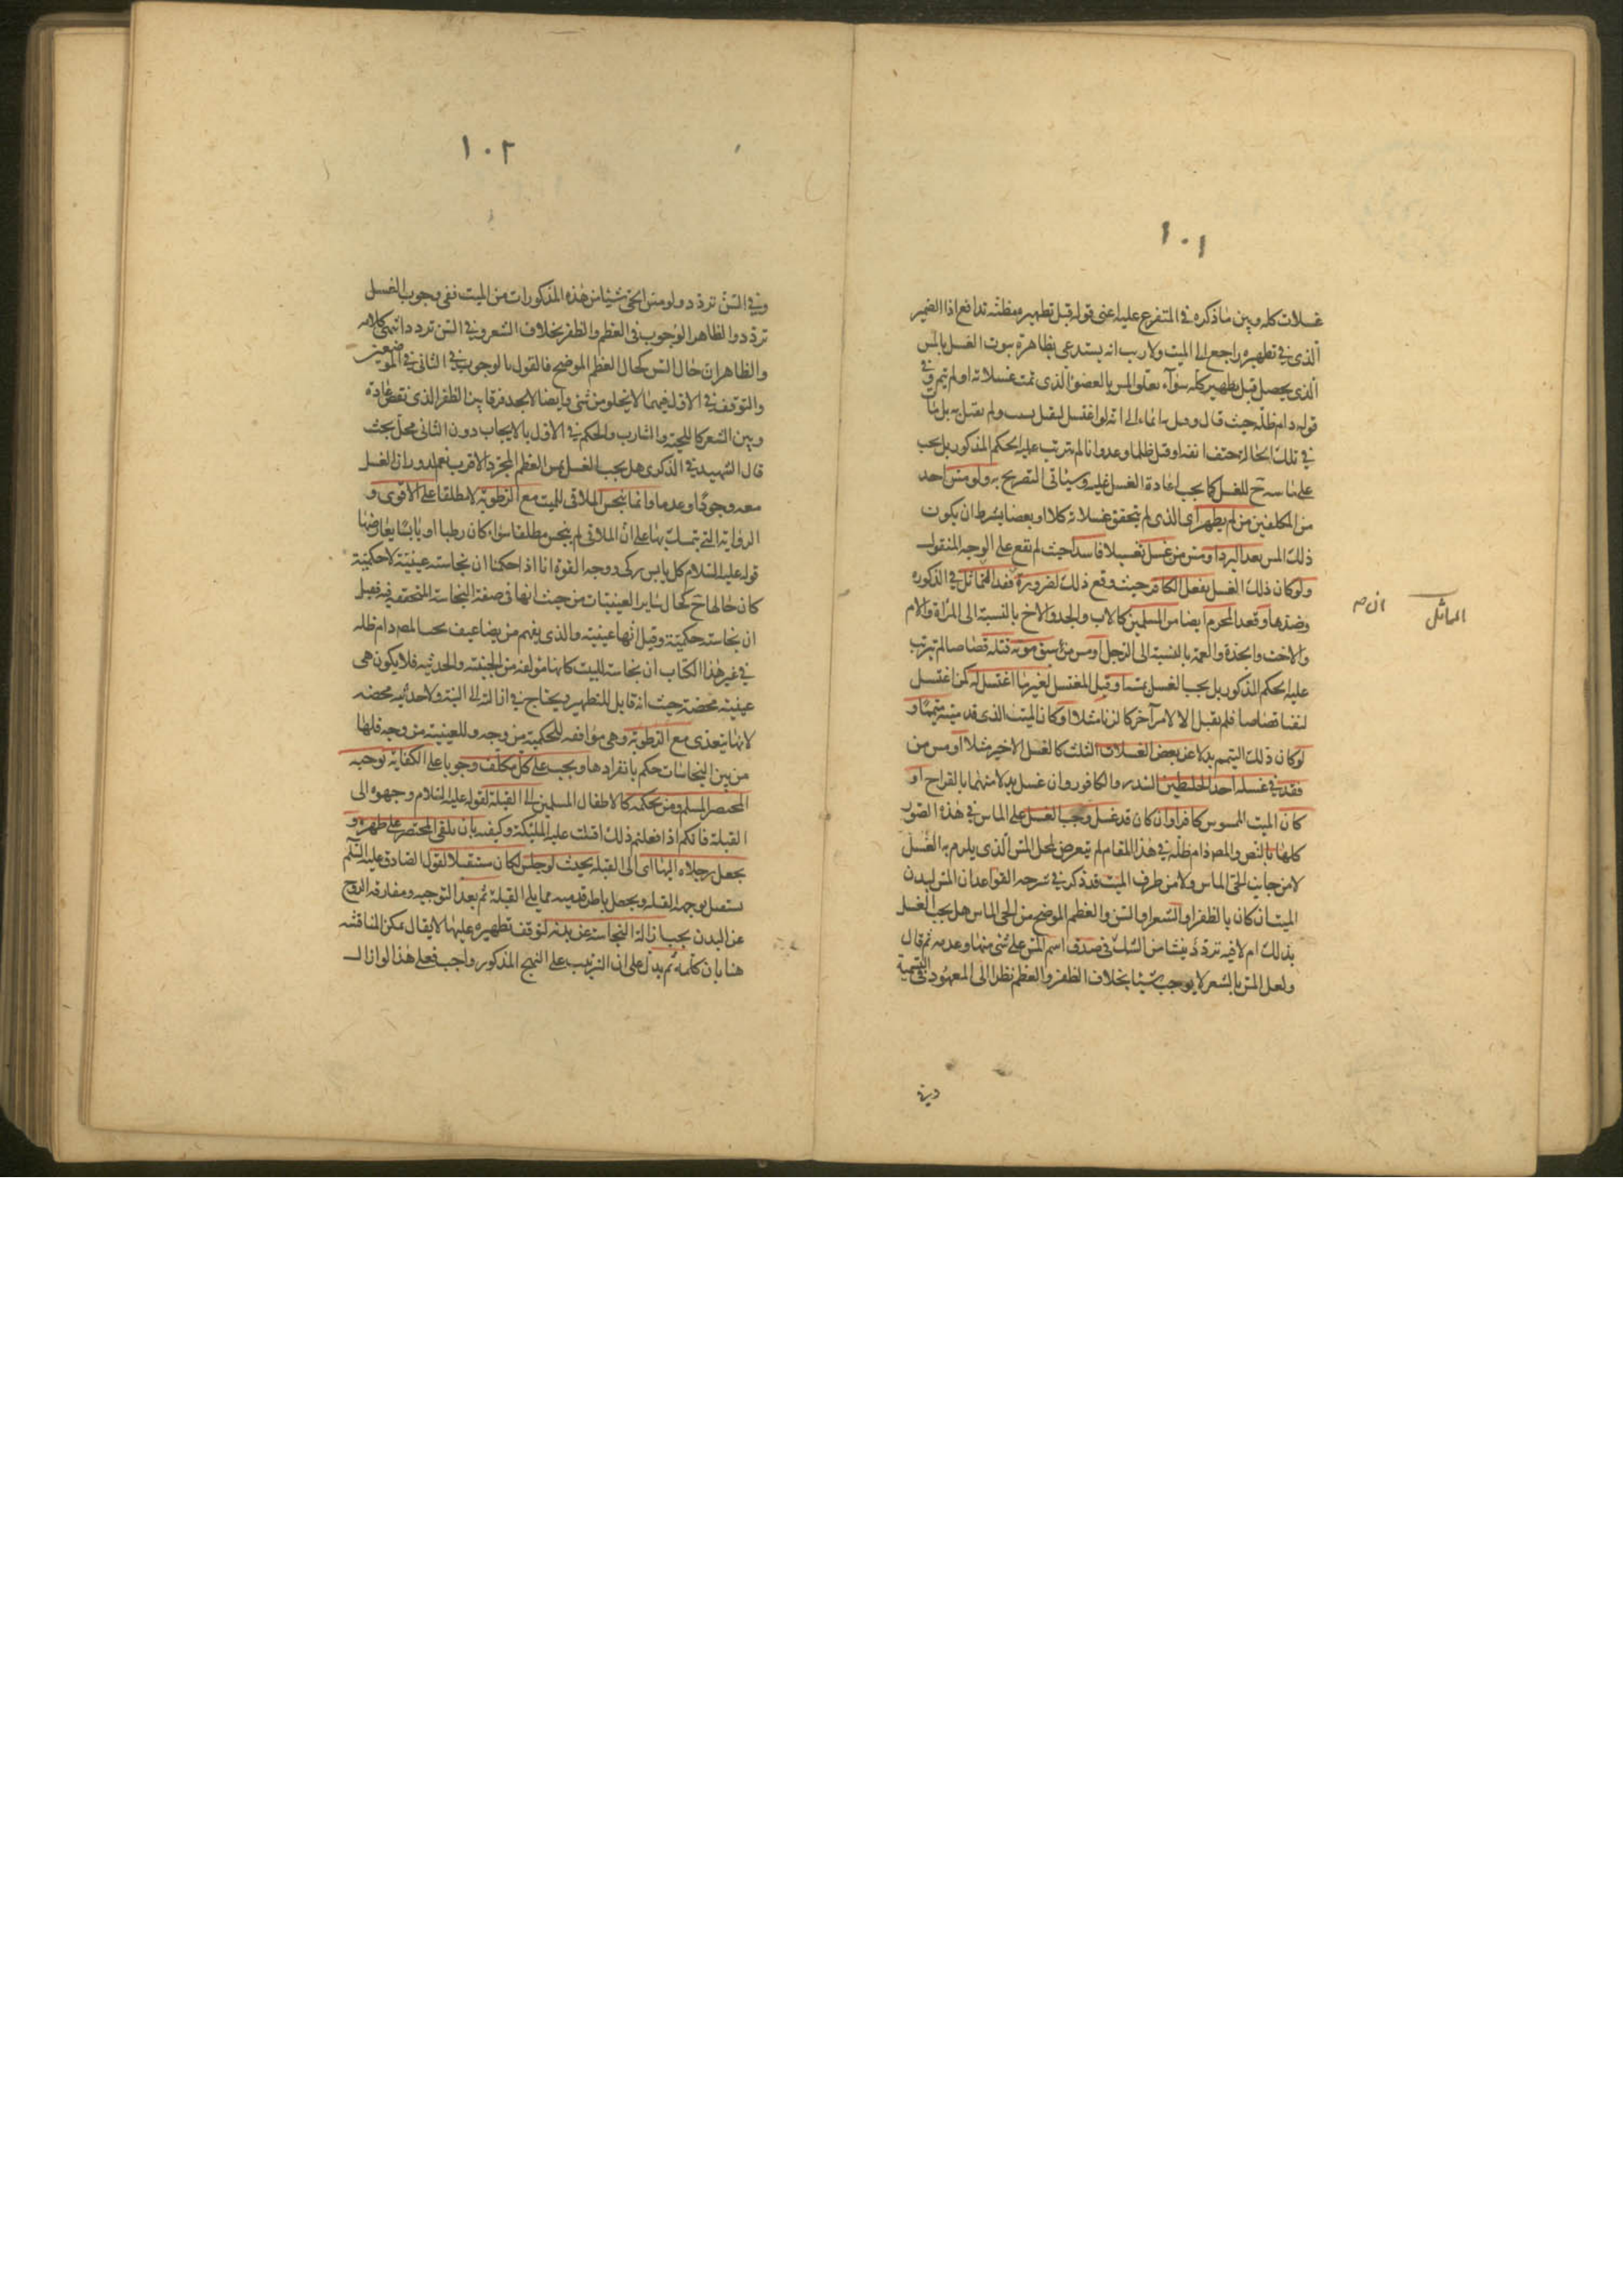 ١٠١
غسلات كله وبين ما ذكره في المتفرع عليه اعنى قوله قبل تطهيره مظنة تدافع اذا الضمير
الذى في تطهيره راجع الى الميت ولا ريب انه يستدعى بظاهره ثبوت الغسل بالمس
الذى يحصل قبل تطهير كله سوآء تعلق المس بالعضو الذى تمت غسلاته او لم يتم وفى
قوله دام ظله حيث قال ايماء الى انه لو اغتسل ليقتل ولم يقتل به بل مات
في تلك الحالة حتف انفه او قتل ظلما وعدوانا لم يترتب عليه الحكم المذكور بل يجب
على ماسه ح الغسل كما يجب اعادة الغسل عليه وسياتى التصريح به ولو مس احد
من المكلفين من لم يطهر اى الذى لم يتحقق غسلاته كلا او بعضا بشرط ان يكون
ذلك المس بعد البرد او مس من غسل تغسيلا فاسدا حيث لم تقع على الوجه المنقول
ولو كان ذلك الغسل بفعل الكافر حيث وقع ذلك لضرورة فقد المماثل في الذكورة
وضدها وفقد المحرم ايضا من المسلمين كالاب والجد والاخ بالنسبة الى المرأة والام
والاخت والجدة والعمة بالنسبة الى الرجل او مس من سبق موته قتله قصاصا لم يترتب
عليه الحكم المذكور بل يجب الغسل بمسه او قتل المغتسل لغير ما اغتسل له كمن اغتسل
ليقتل قصاصا فلم يقتل الا لامر آخر كالزنا مثلا او كان الميت الذى قد مسه متيمما و
لو كان ذلك التيمم بدلا عن بعض الغسلات الثلث كالغسل الاخير مثلا او مس من
فقد في غسله احد الخليطين السدر والكافور وان غسل بدلا منهما بالقراح او
كان الميت الممسوس كافرا وان كان قد غسل وجب الغسل على الماس في هذه الصور
كلها بالنص والمص دام ظله في هذا المقام لم يتعرض لمحل المس الذى يلزم به الغسل
لا من جانب الحى الماس ولا من طرف الميت قد ذكر في شرحه القواعد ان المس لبدن
الميت ان كان بالظفر او الشعر او السن والعظم الموضح من الحى الماس هل يجب الغسل
بذلك ام لا فيه تردد ينشا من الشك في صدق اسم المس على شئ منها وعدمه ثم قال
ولعل المس بالشعر لا يوجب شيئا بخلاف الظفر والعظم نظرا الى المعهود في التسمية
المماثل
وفي
١٠٢
وفي السن تردد ولو مس الحى شيئا من هذه المذكورات من الميت ففى وجوب الغسل
تردد والظاهر الوجوب في العظم والظفر بخلاف الشعر وفي السن تردد انتهى كلامه
والظاهر ان حال السن كحال العظم الموضح فالقول بالوجوب في الثانى في الموضعين
والتوقف في الاول فيهما لا يخلو من شئ وايضا لا نجد فرقا بين الظفر الذى نقص عادة
وبين الشعر كاللحية والشارب والحكم في الاول بالايجاب دون الثانى محل بحث
قال الشهيد في الذكرى هل يجب الغسل بمس العظم المجرد الاقرب نعم لدوران الغسل
معه وجودا وعدما وانما ينجس الملاقى للميت مع الرطوبة لا مطلقا على الاقوى و
الرواية التى يتمسك بها على ان الملاقى له ينجس مطلقا سواء كان رطبا او يابسا يعارضها
قوله عليه السلام كل يابس زكى ووجه القوة انا اذا حكمنا ان نجاسته عينية لا حكمية
كان حالها ح كحال ساير العينيات من حيث انها في صفة النجاسة المتحققة فيه فقيل
ان نجاسته حكمية وقيل انها عينية والذى يفهم من تضاعيف المص دام ظله
في غير هذا الكتاب ان نجاسة الميت كانها مولفة من الخبثية والحدثية فلا يكون هى
عينية محضة حيث انه قابل للتطهير ويحتاج في ازالته الى النية ولا حدثية محضة
لانها يتعدى مع الرطوبة وهى موافقه للحكمية من وجه وللعينية من وجه فلها
من بين النجاسات حكم بانفرادها ويجب على كل مكلف وجوبا على الكفاية توجيه
المحتضر المسلم ومن بحكمه كالاطفال المسلمين الى القبلة لقوله عليه السلام وجهوه الى
القبلة فانكم اذا فعلتم ذلك اقبلت عليه الملئكة وكيفيته بان يلقى المحتضر على ظهره و
يجعل رجلاه اليها اى الى القبلة بحيث لو جلس لكان مستقبلا لقول الصادق عليه السلم
يستقبل بوجهه القبلة ويجعل باطن قدميه مما يلى القبلة ثم بعد التوجيه ومفارقة الروح
عن البدن يجب ازالة النجاسة عن بدنه لتوقف تطهيره عليها لا يقال يمكن المناقشه
هنا بان كلمة ثم يدل على ان الترتيب على النهج المذكور واجب فعلى هذا لو ازال